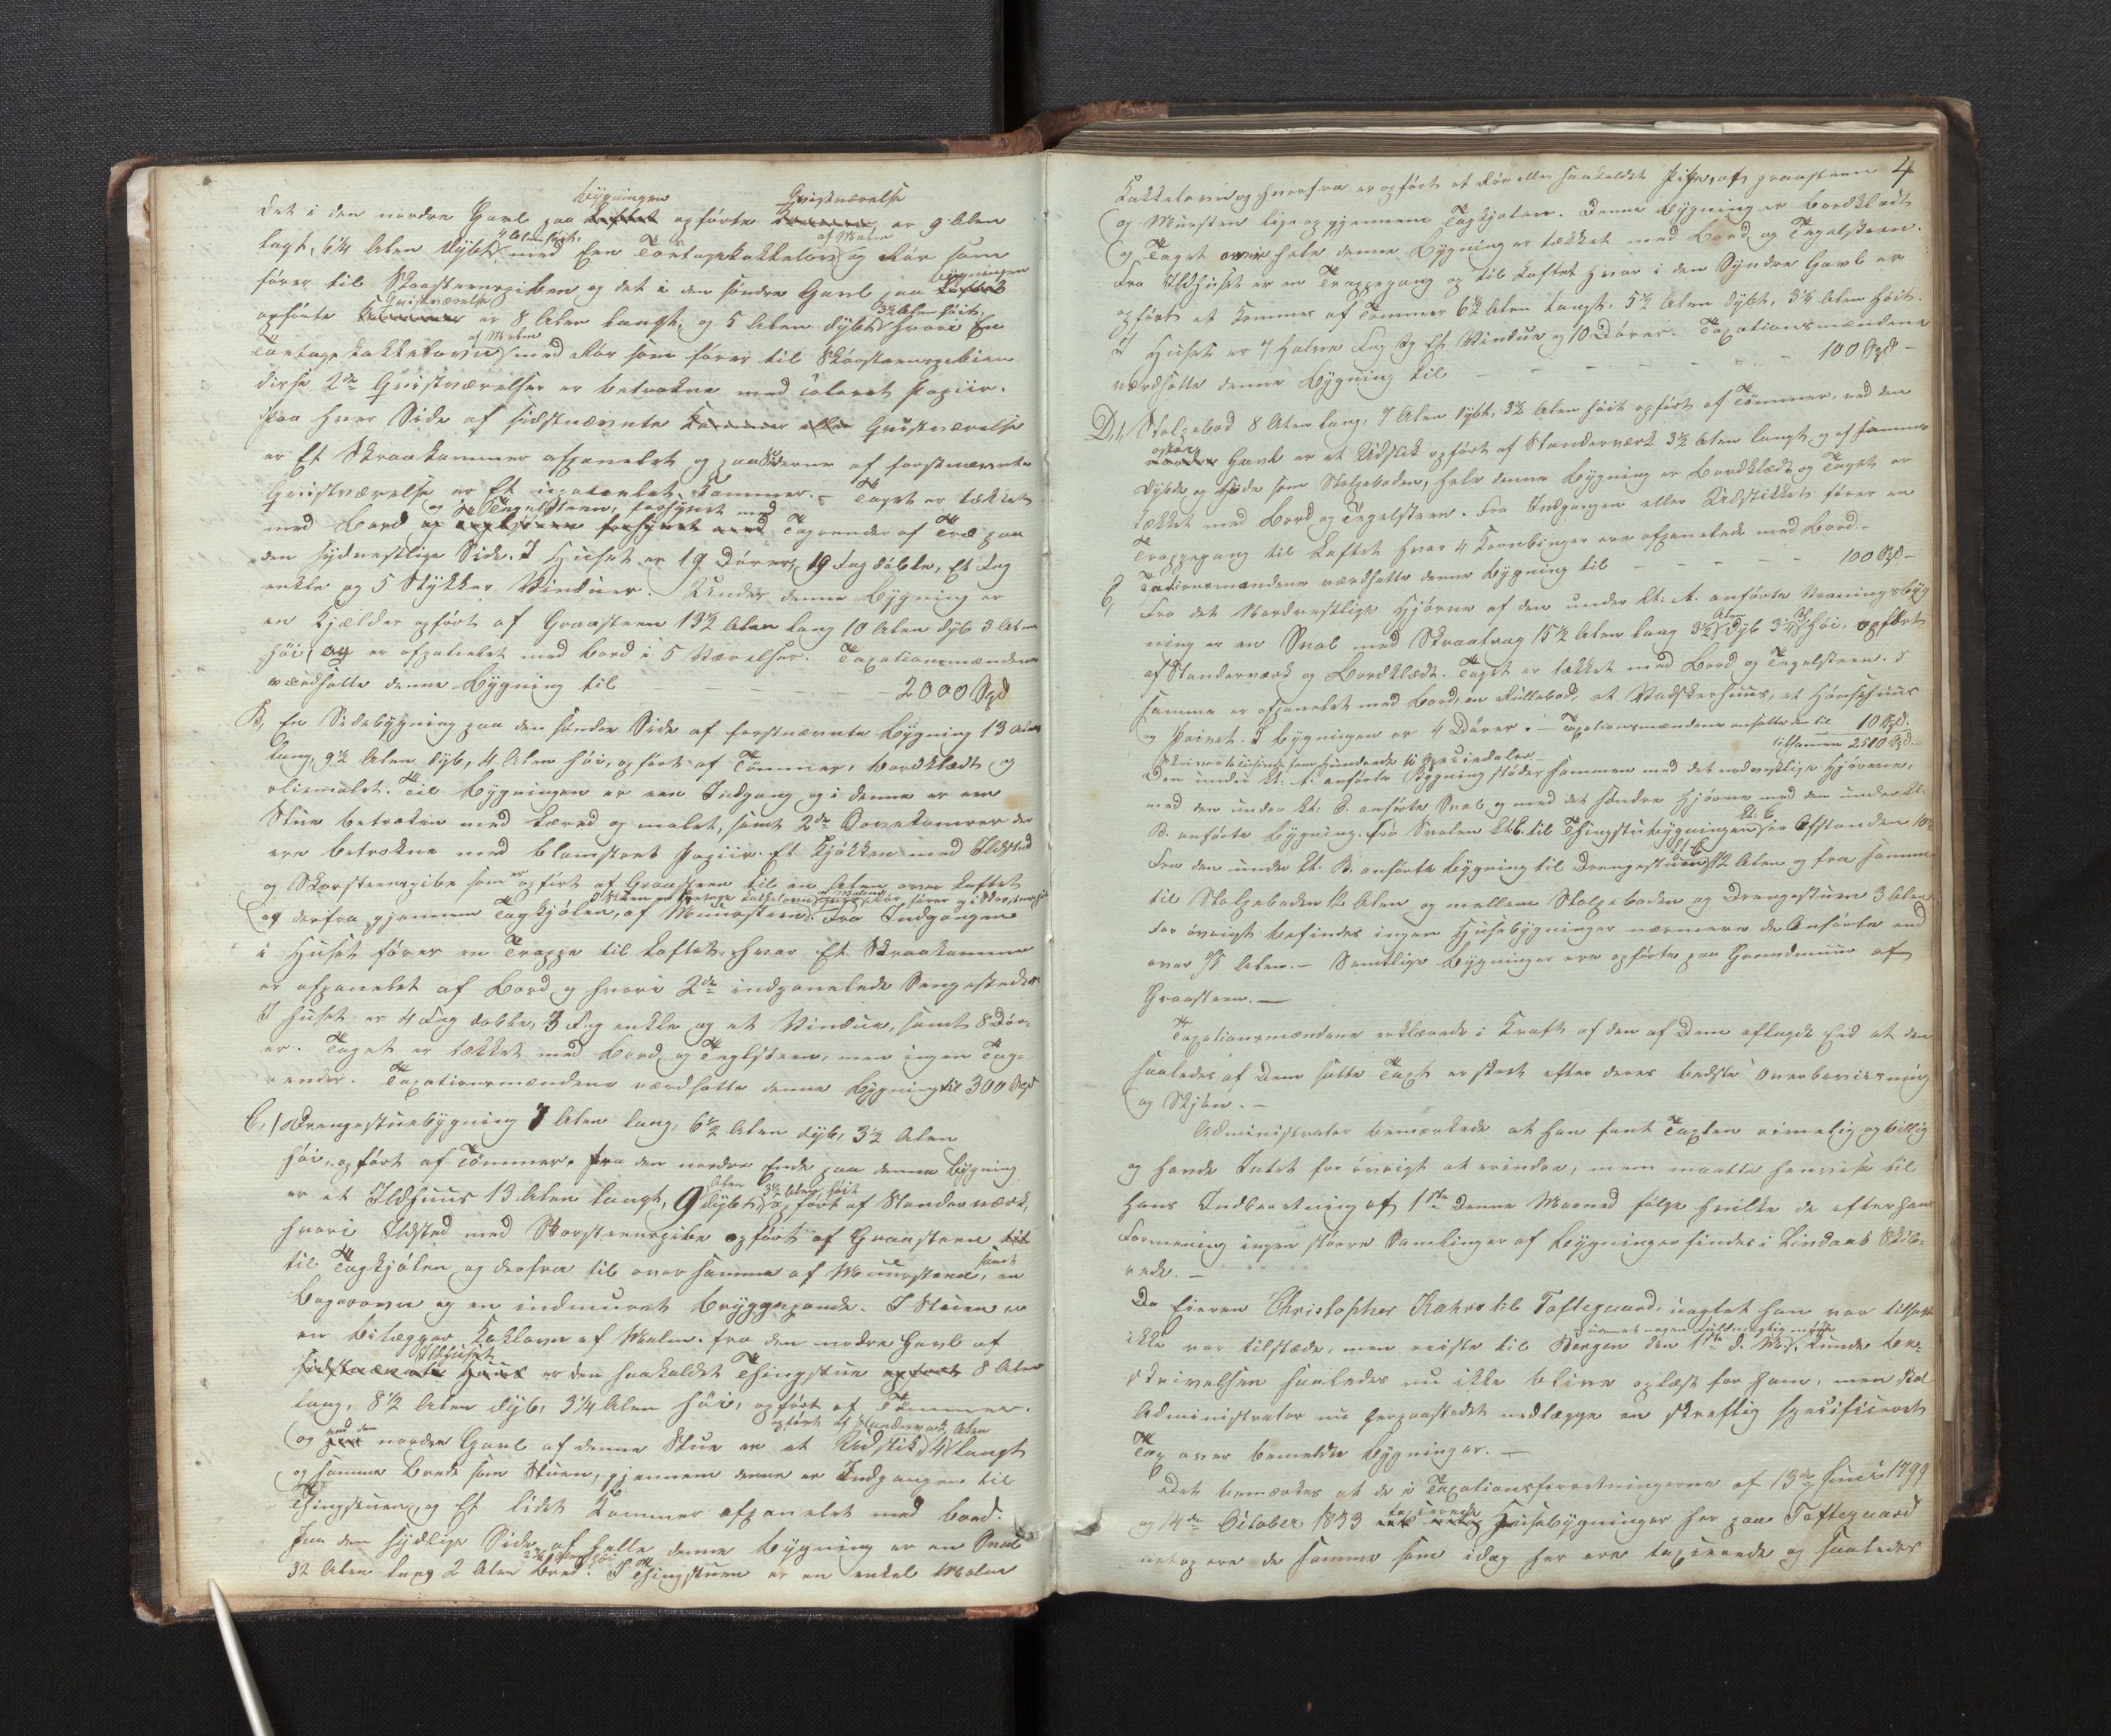 det i den nordre Gavl paa bygningen opførte Qvistværelse er 9 Alen
langt, 6¼ Alen dybt, 4 Alen høit, med Een Toetages Kakkelovn af Malm og Rør som
fører til Skorsteenspiben og det i den søndre Gavl paa bygningen
opførte Qvistværelse er 8 Alen langt, og 5 Alen dybt 3½ Alen høit, hvori En
Toetages Kakkelovn af Malm med Rør som fører til Skorsteenspiben
disse 2de Qvistværelser er betrukne med couleurt Papiir.
Paa hver Side af sidstnævnte Kammer eller Qvistværelse
er Et Skraakammer afpanelet og paa Siderne af forstnævnte
Qvistværelse er Et upanelet Kammer. – Taget er tækket
med Bord og Tegelsteen, forsynet med Tagrender af Træ paa
den sydvestlige Side. I Huset er 19 Dører, 19 Fag dobbelte, Et Fag
enkle og 5 Stykker Vinduer. Under denne Bygning er
en Kjælder opført af Graasteen 13½ Alen lang 10 Alen dyb 3 Alen
høi, og er afpanelet med Bord i 5 Værelser. Taxationsmændene
værdsatte denne Bygning til – – – – – 2000 Spd
B, En Sidebygning paa den søndre Side af forstnævnte Bygning 13 Alen
lang, 9½ Alen dyb, 4 Alen høi, opført af Tømmer, bordklædt og
oliemalet. Til Bygningen er een Indgang og i denne er een
Stue betrukken med Lærred og malet, samt 2de Sovekamrer der
ere betrukne med blomstret Papiir. Et Kjøkken med Ildsted
og Skorsteenspibe som er opført af Graasteen til en Alen over Loftet
og derfra gjennem Tagkjølen, af Muursteen. Fra Indgangen
i Huset fører en Trappe til Loftet hvor Et Skraakammer
er afpanelet af Bord og hvori 2de indpanelede Sengesteder
I Huset er 4 Fag dobble, 3 Fag enkle og et Vindue, samt 8 Dør-
er. Taget er tækket med Bord og Teglsteen, men ingen Tag-
render. Taxationsmændene værdsatte denne Bygning til 300 Spd
C, Drengestuebygning 7 Alen lang, 6½ Alen dyb, 3½ Alen
høi, opført af Tømmer. Fra den nordre Ende paa denne Bygning
er et Ildhuus 13 Alen langt, 9 Alen dybt, 3½ Alen høit opført af Standerværk,
hvori Ildsted med Skorsteenspibe opført af Graasteen
til Tagkjølen og derfra til over samme af Muursteen, samt en
Bagerovn og en indmuuret Bryggepande. I Stuen er
en bilægger Kakkelovn af Malm. Fra den nordre Gavl af
Ildhuset er den saakaldet Thingstue 8 Alen
lang, 8½ Alen dyb, 3¼ Alen høi, opført af Tømmer.
og ved den nordre Gavl af denne Stue er et Udstik opført af Standerværk, 4 Alen langt
og samme Brede som Stuen, gjennem denne er Indgangen til
Thingstuen, og Et lidet Kammer afpanelet med Bord.
Paa den sydlige Side af hele denne Bygning er en Sval
32 Alen lang 2 Alen bred. I Thingstuen er en enkel Malm
4
Kakkelovn og hvorfra er opført et Rør eller saakaldet Pibe, af Graasteen
og Muursten lige op gjennem Tagkjølen. Denne Bygning er bordklædt
og Taget over hele denne Bygning er tækket med Bord og Tegelsteen.
Fra Ildhuset er en Trappegang op til Loftet hvor i den Syndre Gavl er
opført et Kammer af Tømmer 6½ Alen langt, 5½ Alen dybt, 3¼ Alen høit.
I Huset er 7 halve Fag og Et Vindue og 10 Dører. Taxationsmændene
værdsatte denne Bygning til – – – – – 100 Spd –
D, Stolpebod 8 Alen lang, 7 Alen dybt, 3½ Alen høit opført af Tømmer, ved den
østre Gavl er et Udstik opført af Standerværk 3½ Alen langt og af samme
Dybde og Høide som Stolpeboden, hele denne Bygning er Bordklædt og Taget er
tækket med Bord og Tegelsteen. Fra Indgangen eller Udstikket fører en
Trappegang til Loftet hvor 4 Kornbinger ere afpanelede med Bord. –
Taxtionsmændene værdsatte denne Bygning til – – – – 100 Spd –
E, Fra det Nordvestlige Hjørne af den under Lit: A. anførte Vaaningsbyg
ning er en Sval med Skraatag 15½ Alen lang 3½ Alen dyb 3¼ høi, opført
af Standerværk og Bordklædt. Taget er tækket med Bord og Tegelsteen. I
samme er afpanelet med Bord, en Rullebod, et Vadskerhuus, et Hønsehuus
og Privet. I Bygningen er 4 Dører. – Taxationsmændene ansatte den til 10 Spd.
tilsammen 2510 Spd. –
Den under Lit. A. anførte Bygning støder sammen med det nordvestlige Hjørne,
med den under Lit: E. anførte Sval og med det søndre Hjørne med den under Lit.
B. anførte Bygning. Fra Svalen Lit E. til Thingstubygningen Lit. C er Afstanden 10
Fra den under Lit. B. anførte Bygning til Drengestuen Lit C 12 Alen og fra samme
til Stolpeboden 12 Alen og mellem Stolpeboden og Drengestuen 3 Alen
For øvrigt befindes ingen Huusebygninger nærmere de Anførte end
over Alen. – Samtlige Bygninger ere opførte paa Grundmuur af
Graasteen. –
Taxationsmændene erklærede i Kraft af den af Dem aflagde Eed at den
saaledes af Dem satte Taxt er skeet efter deres bedste Overbeviisning
og Skjøn. –
Administrator bemærkede at han fant Taxten rimelig og billig
og havde Intet for øvrigt at erindre, men maatte henvise til
hans Indberetning af 1ste denne Maaned ifølge hvilke de efter hans
Formening ingen større Samlinger af Bygninger findes i Lindaas Skib-
rede. –
Da Eieren Christopher Rahrs til Toftegaard, uagtet han var tilsagt
ikke var tilstæde, men reiste til Bergen den 1ste d. M., kunde Be-
skrivelsen saaledes nu ikke blive oplæst for ham, men skal
Administrator nu herpaastedet nedlægge en skriftlig specificeret
Tax over bemeldte Bygninger. –
Det bemærkes at de i Taxationsforretningerne af 13de Junii 1799
og 14de October 1833 taxerede Huusebygninger her paa Toftegaard
netop ere de samme som idag her ere taxerede og saaledes